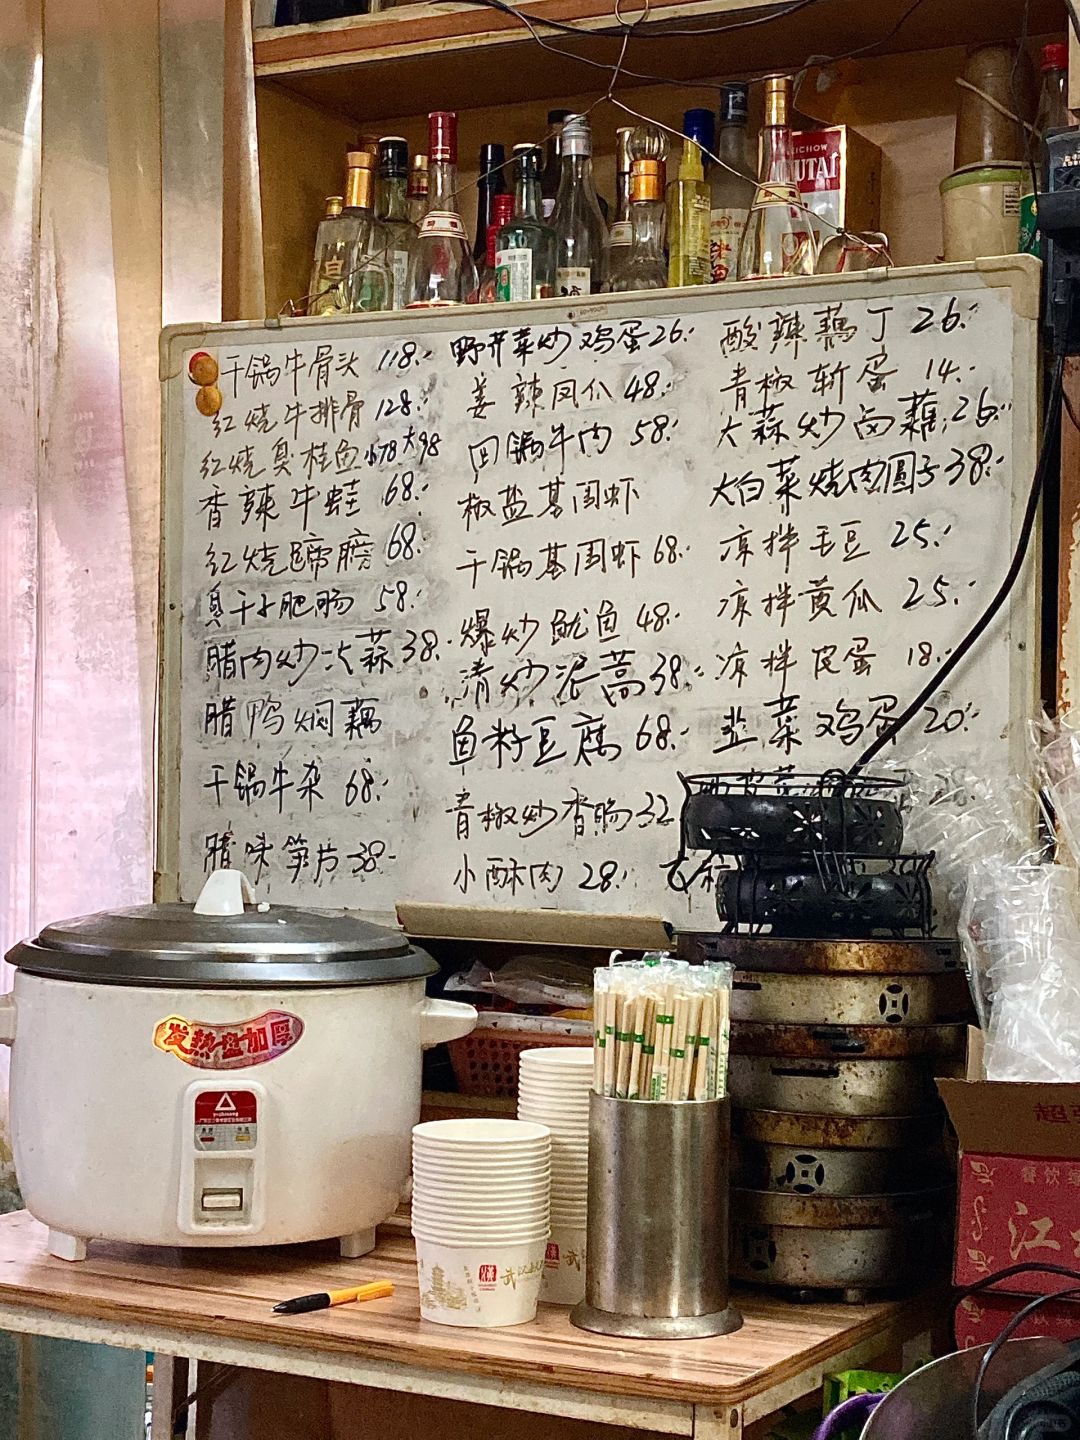 干锅牛骨头 118.-
红烧牛排骨 128.-
红烧臭桂鱼 小78 大98
香辣牛蛙 68.-
红烧蹄膀 68.-
臭干小肥肠 58.-
腊肉炒大蒜 38.-
腊鸭焖藕
干锅牛杂 68.-
腊味笋片 38-
野芹菜炒鸡蛋 26.-
姜辣凤爪 48.-
回锅牛肉 58.-
椒盐基围虾
干锅基围虾 68.-
爆炒鱿鱼 48.-
清炒泥蒿 38.-
鱼籽豆腐 68.-
青椒炒香肠 32
小酥肉 28.-
酸辣藕丁 26.-
青椒斩蛋 14.-
大蒜炒卤藕 26.-
大白菜烧肉圆子 38.-
凉拌毛豆 25.-
凉拌黄瓜 25.-
凉拌皮蛋 18.-
韭菜鸡蛋 20.-
发热盘加厚
白
UTAI
江